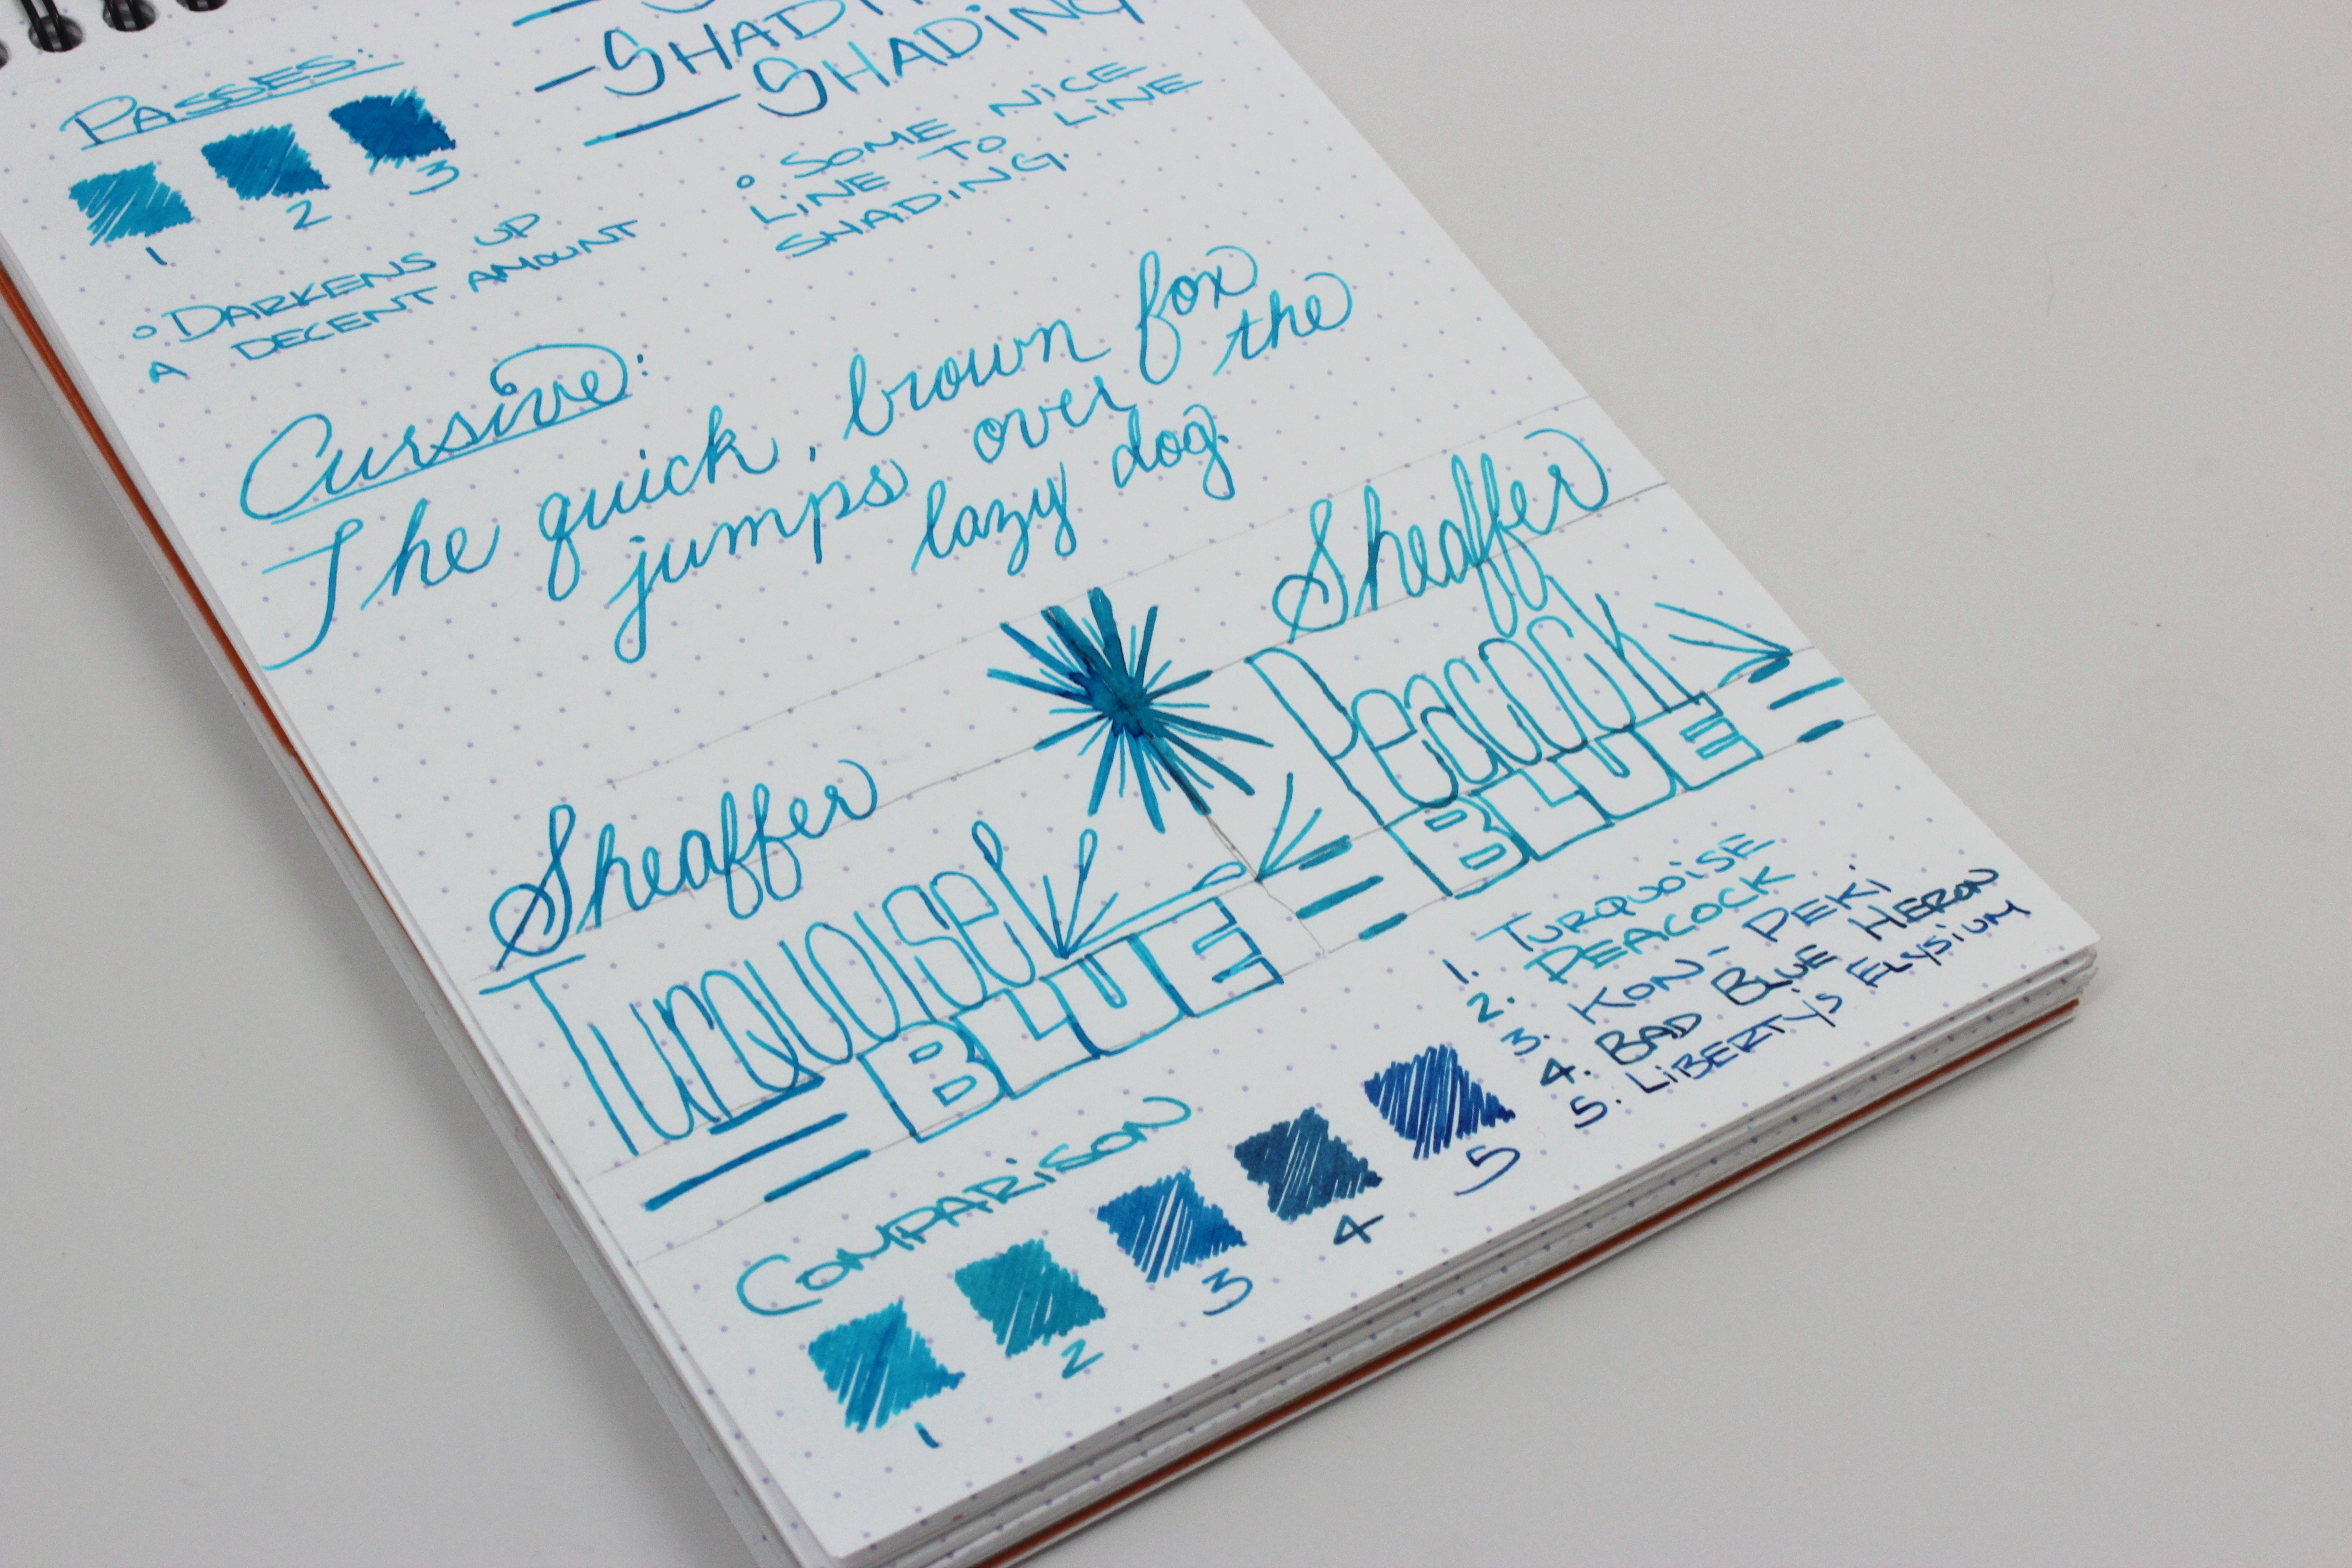 PASSES:
1 2 3
○ DARKENS UP
A DECENT AMOUNT
- SHADI
- SHADING
○ SOME NICE
LINE TO LINE
SHADING.
Cursive:
The quick, brown fox
jumps over the
lazy dog.
Sheaffer
Turquoise
BLUE
Sheaffer
Peacock
BLUE
COMPARISON
1 2 3 4 5
1. TURQUOISE
2. PEACOCK
3. KON-PEKI
4. BAD BLUE HERON
5. LIBERTY'S ELYSIUM